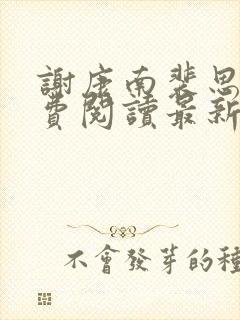 謝康南裴思
費閱讀最新
不會發芽的種